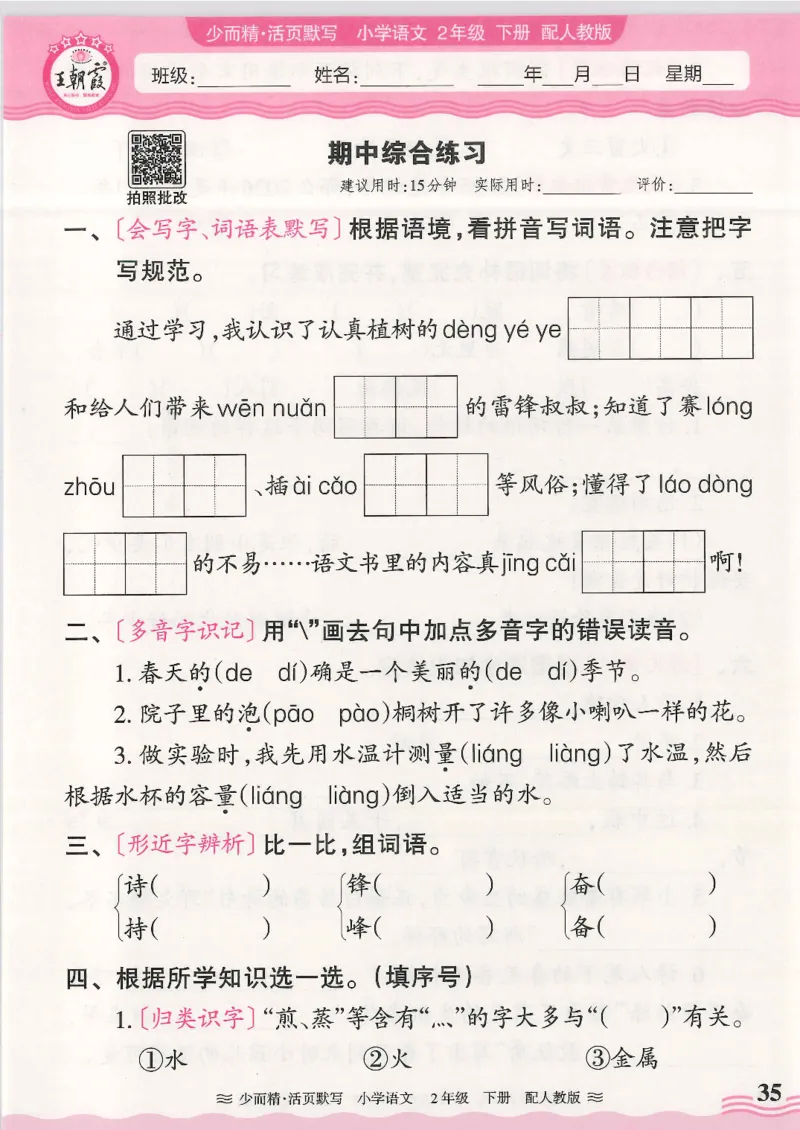 少而精·活页默写 小学语文 2年级 下册 配人教版
王朝霞
班级: 姓名: 年 月 日 星期
期中综合练习
拍照批改
建议用时:15分钟 实际用时: 评价:
一、〔会写字、词语表默写〕根据语境,看拼音写词语。注意把字
写规范。
通过学习,我认识了认真植树的dèng yé ye
和给人们带来wēn nuǎn 的雷锋叔叔;知道了赛lóng
zhōu 、插ài cǎo 等风俗;懂得了láo dòng
的不易……语文书里的内容真jīng cǎi 啊!
二、〔多音字识记〕用“\”画去句中加点多音字的错误读音。
1.春天的(de dí)确是一个美丽的(de dí)季节。
2.院子里的泡(pāo pào)桐树开了许多像小喇叭一样的花。
3.做实验时,我先用水温计测量(liáng liàng)了水温,然后
根据水杯的容量(liáng liàng)倒入适当的水。
三、〔形近字辨析〕比一比,组词语。
诗( ) 锋( ) 奋( )
持( ) 峰( ) 备( )
四、根据所学知识选一选。(填序号)
1.〔归类识字〕“煎、蒸”等含有“灬”的字大多与“( )”有关。
①水 ②火 ③金属
少而精·活页默写 小学语文 2年级 下册 配人教版
35